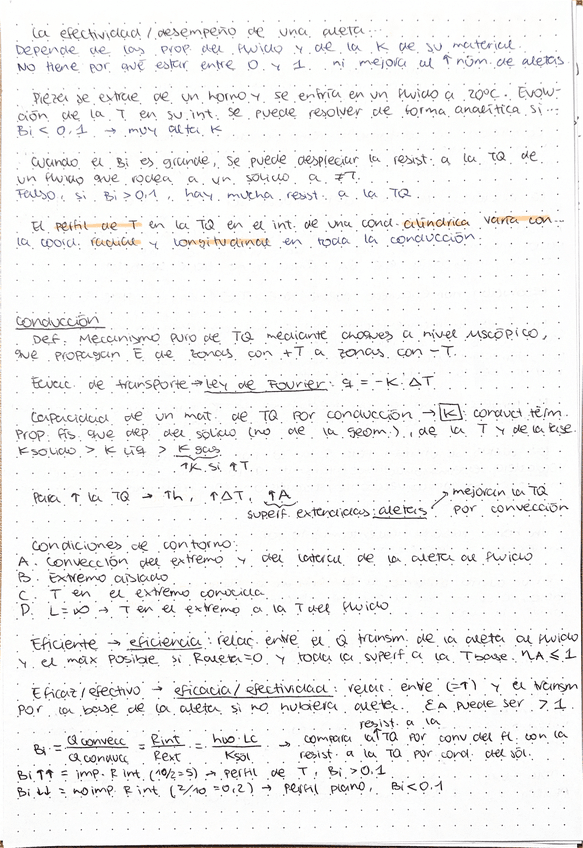 La efectividad/desempeño de una aleta...
Depende de las prop del fluido y de la K de su material.
No tiene por qué estar entre 0 y 1 ni mejora al ↑ núm. de aletas.
Pieza se extrae de un horno y se enfría en un fluido a 20ºC. Evolu-
ción de la T en su int. se puede resolver de forma analítica si...
Bi < 0,1 → muy alta K
Cuando el Bi es grande, se puede despreciar la resist. a la TQ de
un fluido que rodea a un sólido a ≠T.
Falso, si Bi > 0,1, hay mucha resist. a la TQ.
El perfil de T en la TQ en el int. de una cond. cilíndrica varía con...
la coord. radial y longitudinal en toda la conducción.
Conducción
Def. Mecanismo puro de TQ mediante choques a nivel μscópico,
que propagan E de zonas con +T a zonas con -T.
Ecuac. de transporte → Ley de Fourier: q = -K · ΔT
Capacidad de un mat. de TQ por conducción → K: conduct térm.
Prop. fís. que dep. del sólido (no de la geom.), de la T y de la fase.
K sólido > K líq > K gas
↑K si ↑T
Para ↑ la TQ → ↑h, ↑ΔT, ↑A
superf. extendidas: aletas → mejoran la TQ
por convección
Condiciones de contorno:
A. Convección del extremo y del lateral de la aleta al fluido
B. Extremo aislado
C. T en el extremo conocida
D. L=∞ → T en el extremo a la T del fluido
Eficiente → eficiencia: relac. entre el Q transm. de la aleta al fluido
y el máx posible si Raleta=0 y toda la superf a la Tbase. ηA ≤ 1
Eficaz/efectivo → eficacia/efectividad: relac. entre (=↑) y el transm
por la base de la aleta si no hubiera aleta. εA puede ser > 1.
Bi = Q convecc / Q conducc = Rint / Rext = h∞·LC / Ksól → compara la resist. a la TQ por conv del fl. con la
resist. a la TQ por cond. del sól.
Bi ↑↑ = imp. R int. (10/2=5) → perfil de T, Bi > 0.1
Bi ↓↓ = no imp. R int. (2/10=0,2) → perfil plano, Bi < 0.1